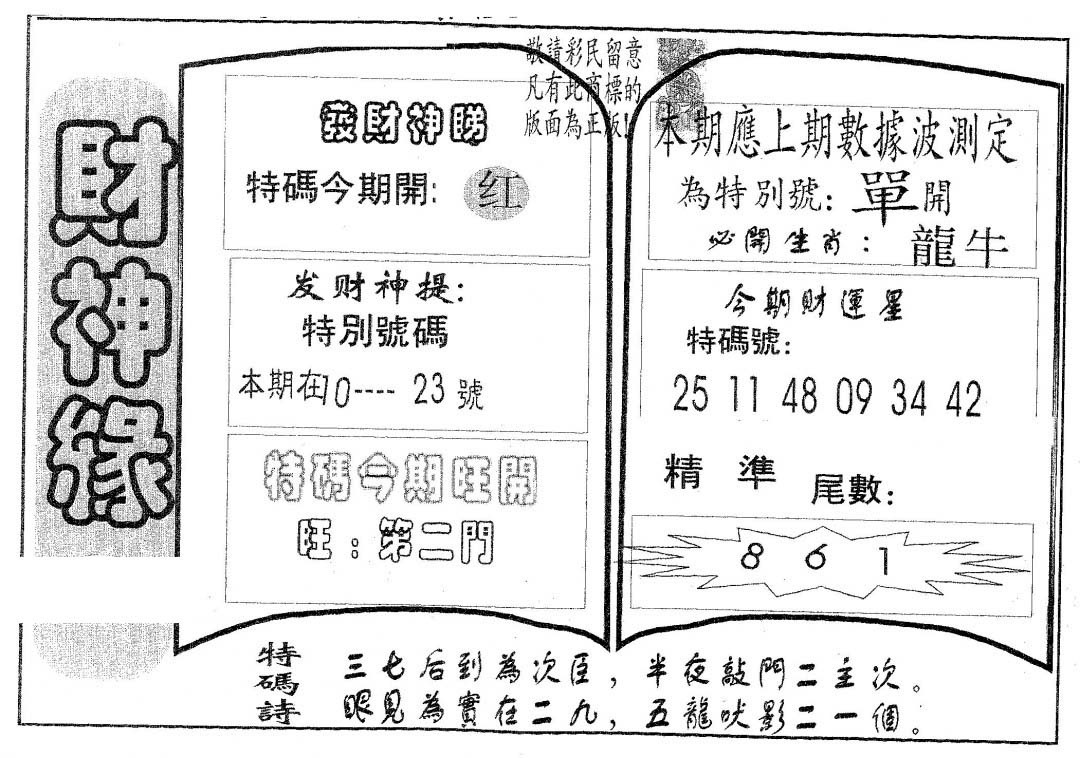 財神緣
敬請彩民留意
凡有此商標的
版面為正版!
發財神睇
特碼今期開: 红
发财神提:
特別號碼
本期在10----23號
特碼今期旺開
旺:第二門
本期應上期數據波測定
為特別號: 單開
必開生肖: 龍牛
今期财運星
特碼號:
25 11 48 09 34 42
精準 尾數:
8 6 1
特碼詩
三七后到為次臣，半夜敲門二主次。
眼見為實在二九，五龍吠影二一個。